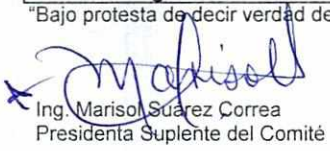 "Bajo protesta de decir verdad de
Marisol
Ing. Marisol Suárez Correa
Presidenta Suplente del Comité